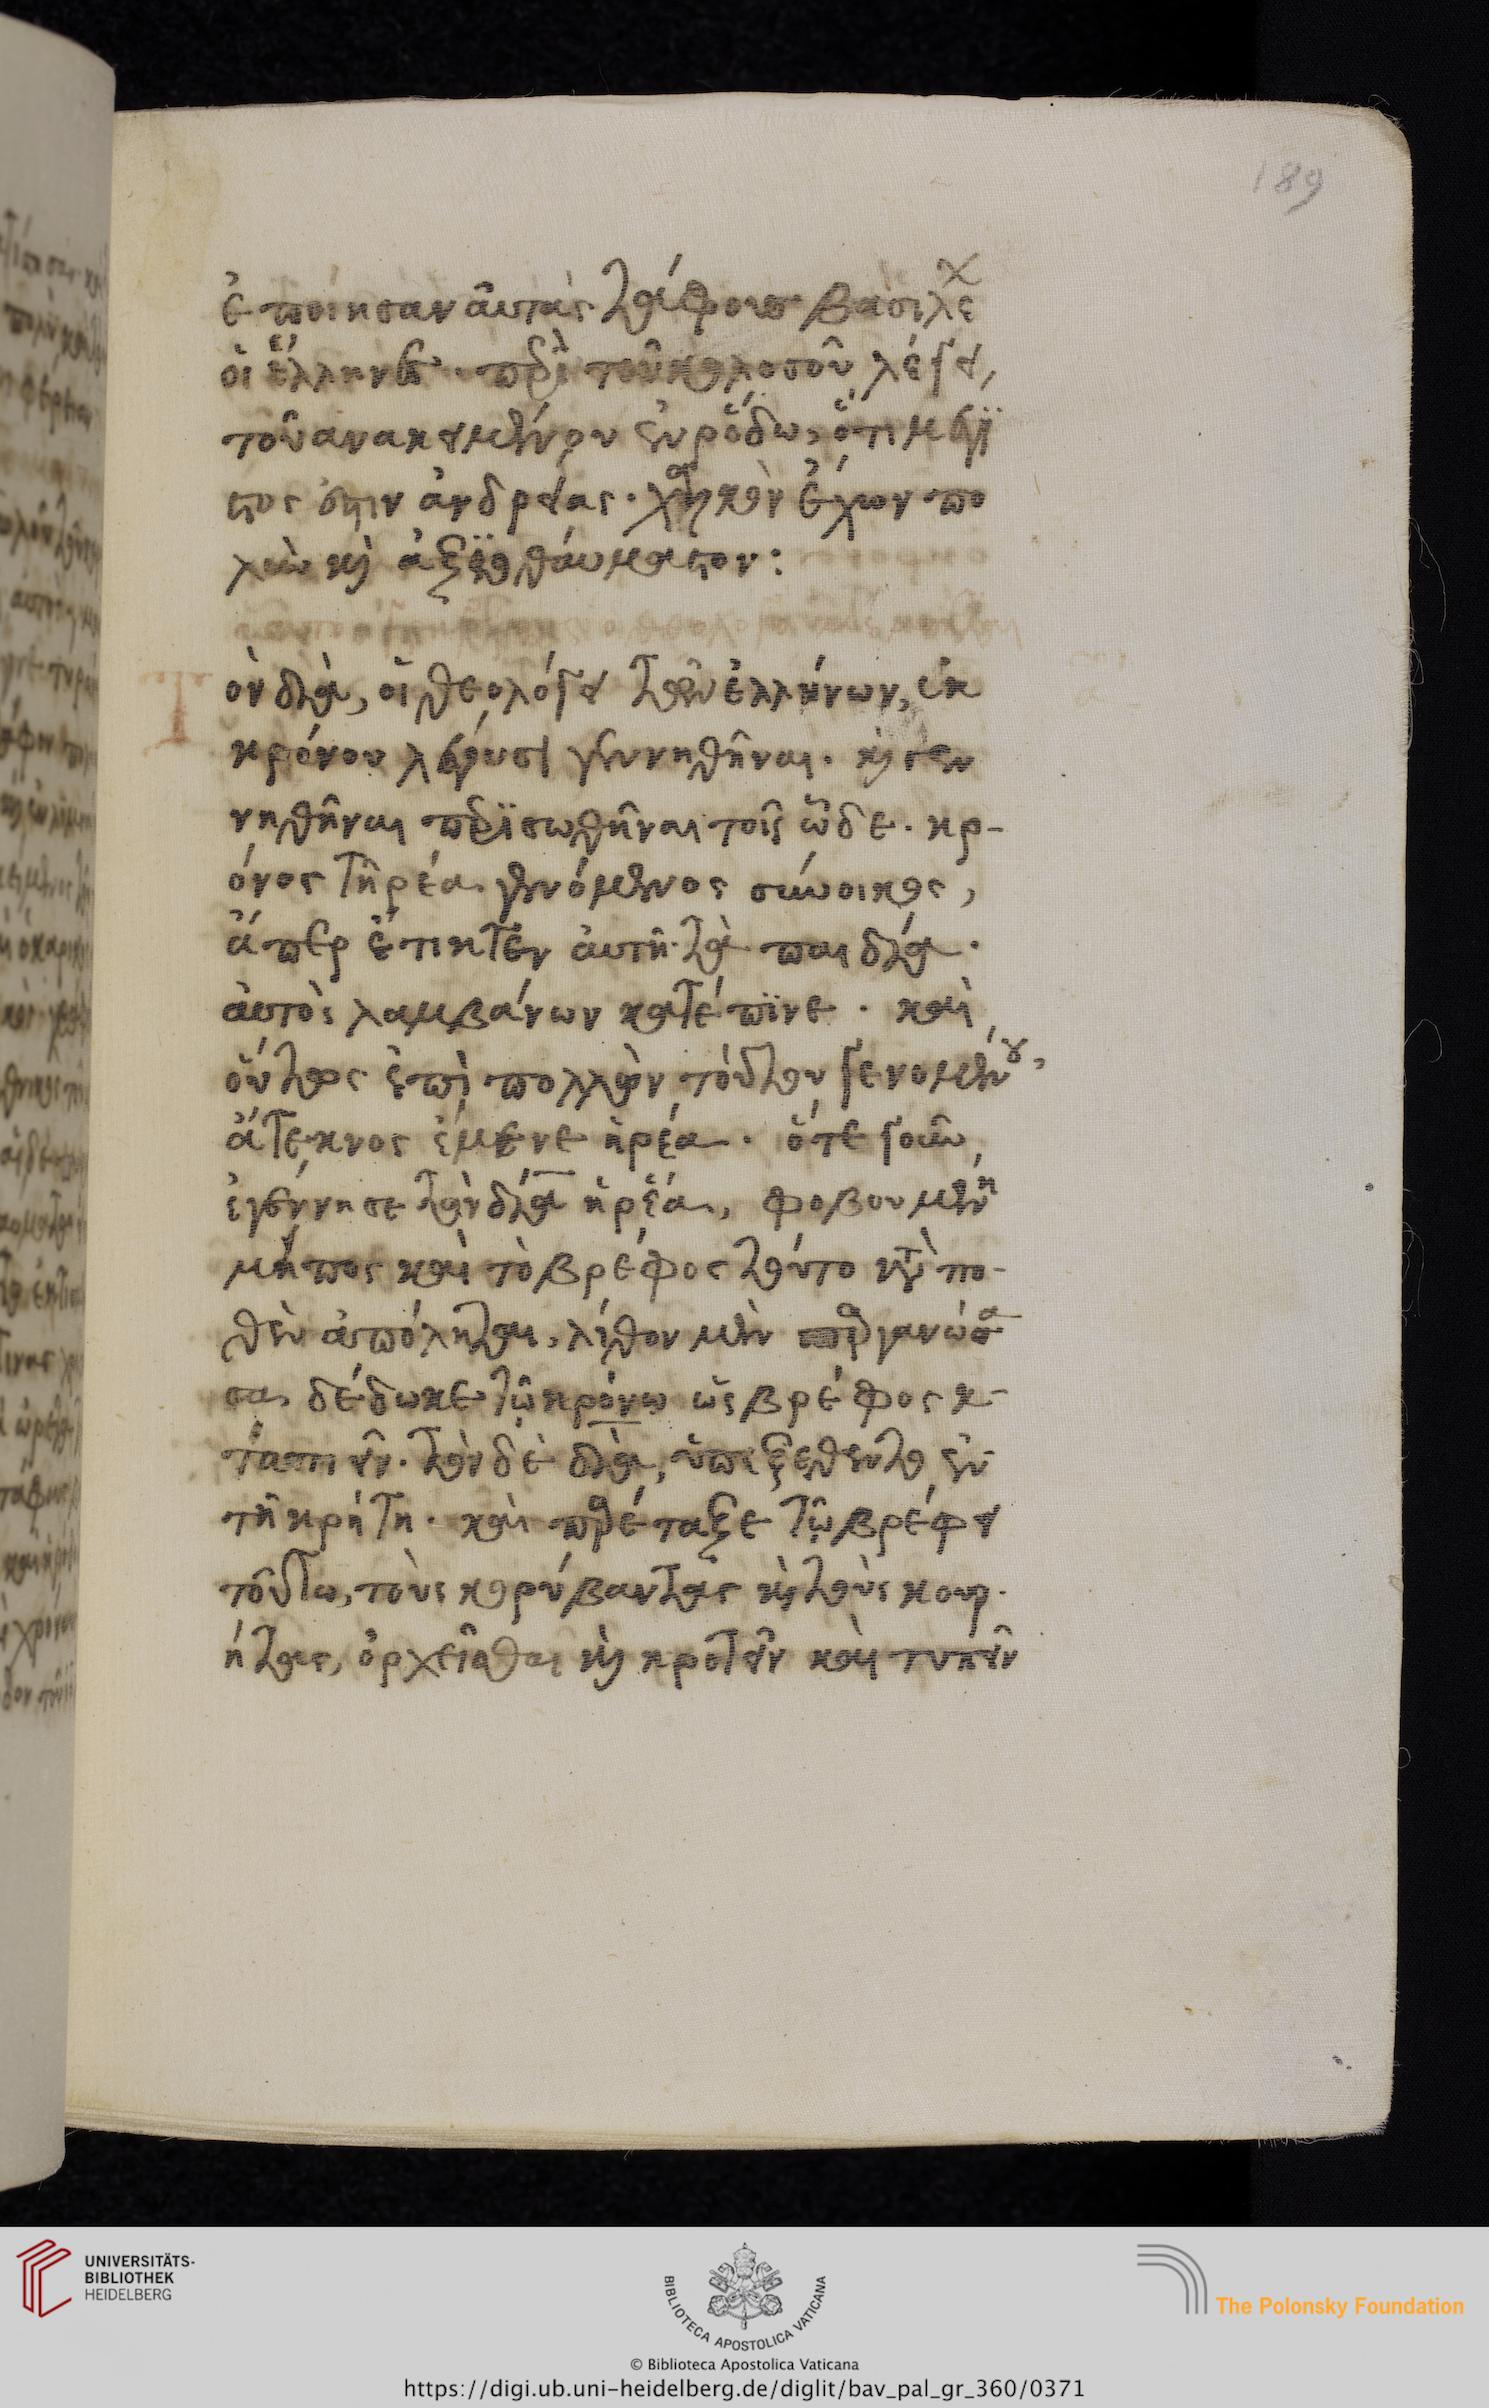 189
ἐποίησαν αὐτὰς τάφους βασιλέων
οἱ ἕλληνες. περὶ τοῦ κολοσοῦ λέγει,
τοῦ ἀνακειμένου ἐν ῥόδω, ὅτι μέγι
στος ἐστιν ἀνδρείας. χαλκὸν ἔχων πο
λὺν καὶ ἀξιοθάυμαστον:
Τὸν δία, οἱ θεολόγοι τῶν ἑλλήνων, ἐκ
κρόνου λέγουσι γεννηθῆναι. καὶ γεν
νηθῆναι περισωθῆναι τοῖς ὧδε. κρ-
όνος τῆ ρέα γενόμενος σύνοικος,
ἅπερ ἔτικτεν ἀυτῆ τὰ παιδία.
ἀυτὸς λαμβάνων κατέπινε. καὶ
οὕτως ἐπὶ πολλῶν τούτου γενομένου,
ἄτεκνος ἔμενε ἡ ρέα. ὅτε γοῦν
ἐγέννησε τὸν δία ἡ ρέα, φοβουμένη
μήπως καὶ τὸ βρέφος τοῦτο καταπο-
θὲν ἀπόληται, λίθον μὲν σπαργανώσα
σα δέδωκε τῶ κρόνω ὡς βρέφος κ-
ταπιεῖν. τὸν δὲ δία, ὑπεξέθεντο ἐν
τῆ κρήτη. καὶ παρέταξε τῶ βρέφει
τούτω, τοὺς κορύβαντας καὶ τοὺς κουρ.
ήτας, ὀρχεῖσθαι καὶ κροτεῖν καὶ τυπεῖν
UNIVERSITÄTS-
BIBLIOTHEK
HEIDELBERG
BIBLIOTECA APOSTOLICA VATICANA
The Polonsky Foundation
© Biblioteca Apostolica Vaticana
https://digi.ub.uni-heidelberg.de/diglit/bav_pal_gr_360/0371